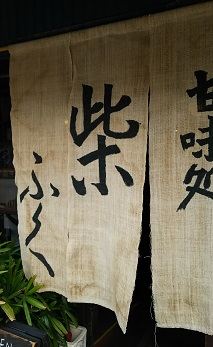 甘味処
柴
ふく
EN